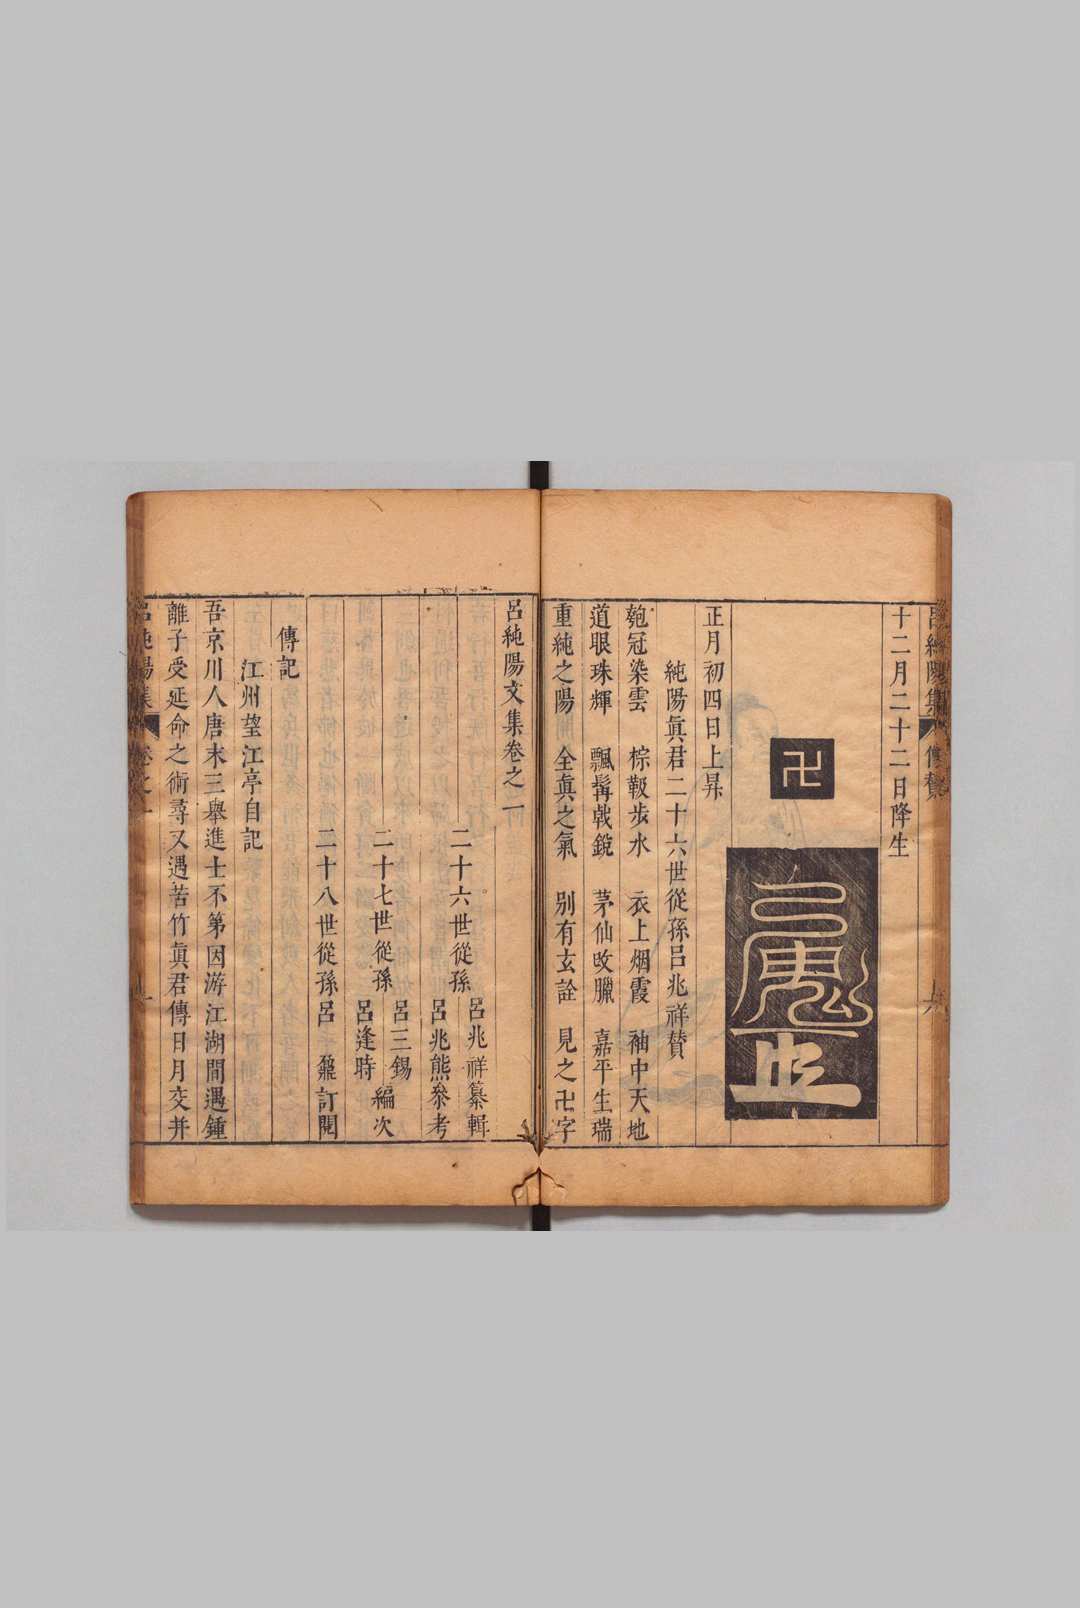 呂純陽集 傳贊 六
十二月二十二日降生
卍
正月初四日上昇
純陽眞君二十六世從孫呂兆祥贊
匏冠染雲 棕鞍步水 衣上烟霞 袖中天地
道眼珠輝 飄髯戟鋭 茅仙攺臘 嘉平生瑞
重純之陽 全眞之氣 別有玄詮 見之卍字
呂純陽文集卷之一
二十六世從孫 呂兆祥纂輯
呂兆熊叅考
二十七世從孫 呂三錫
呂逢時 編次
二十八世從孫呂 訂閱
傳記
江州望江亭自記
吾京川人唐末三舉進士不第因游江湖間遇鍾
離子受延命之術尋又遇苦竹眞君傳日月交并
呂純陽集 卷之一 一